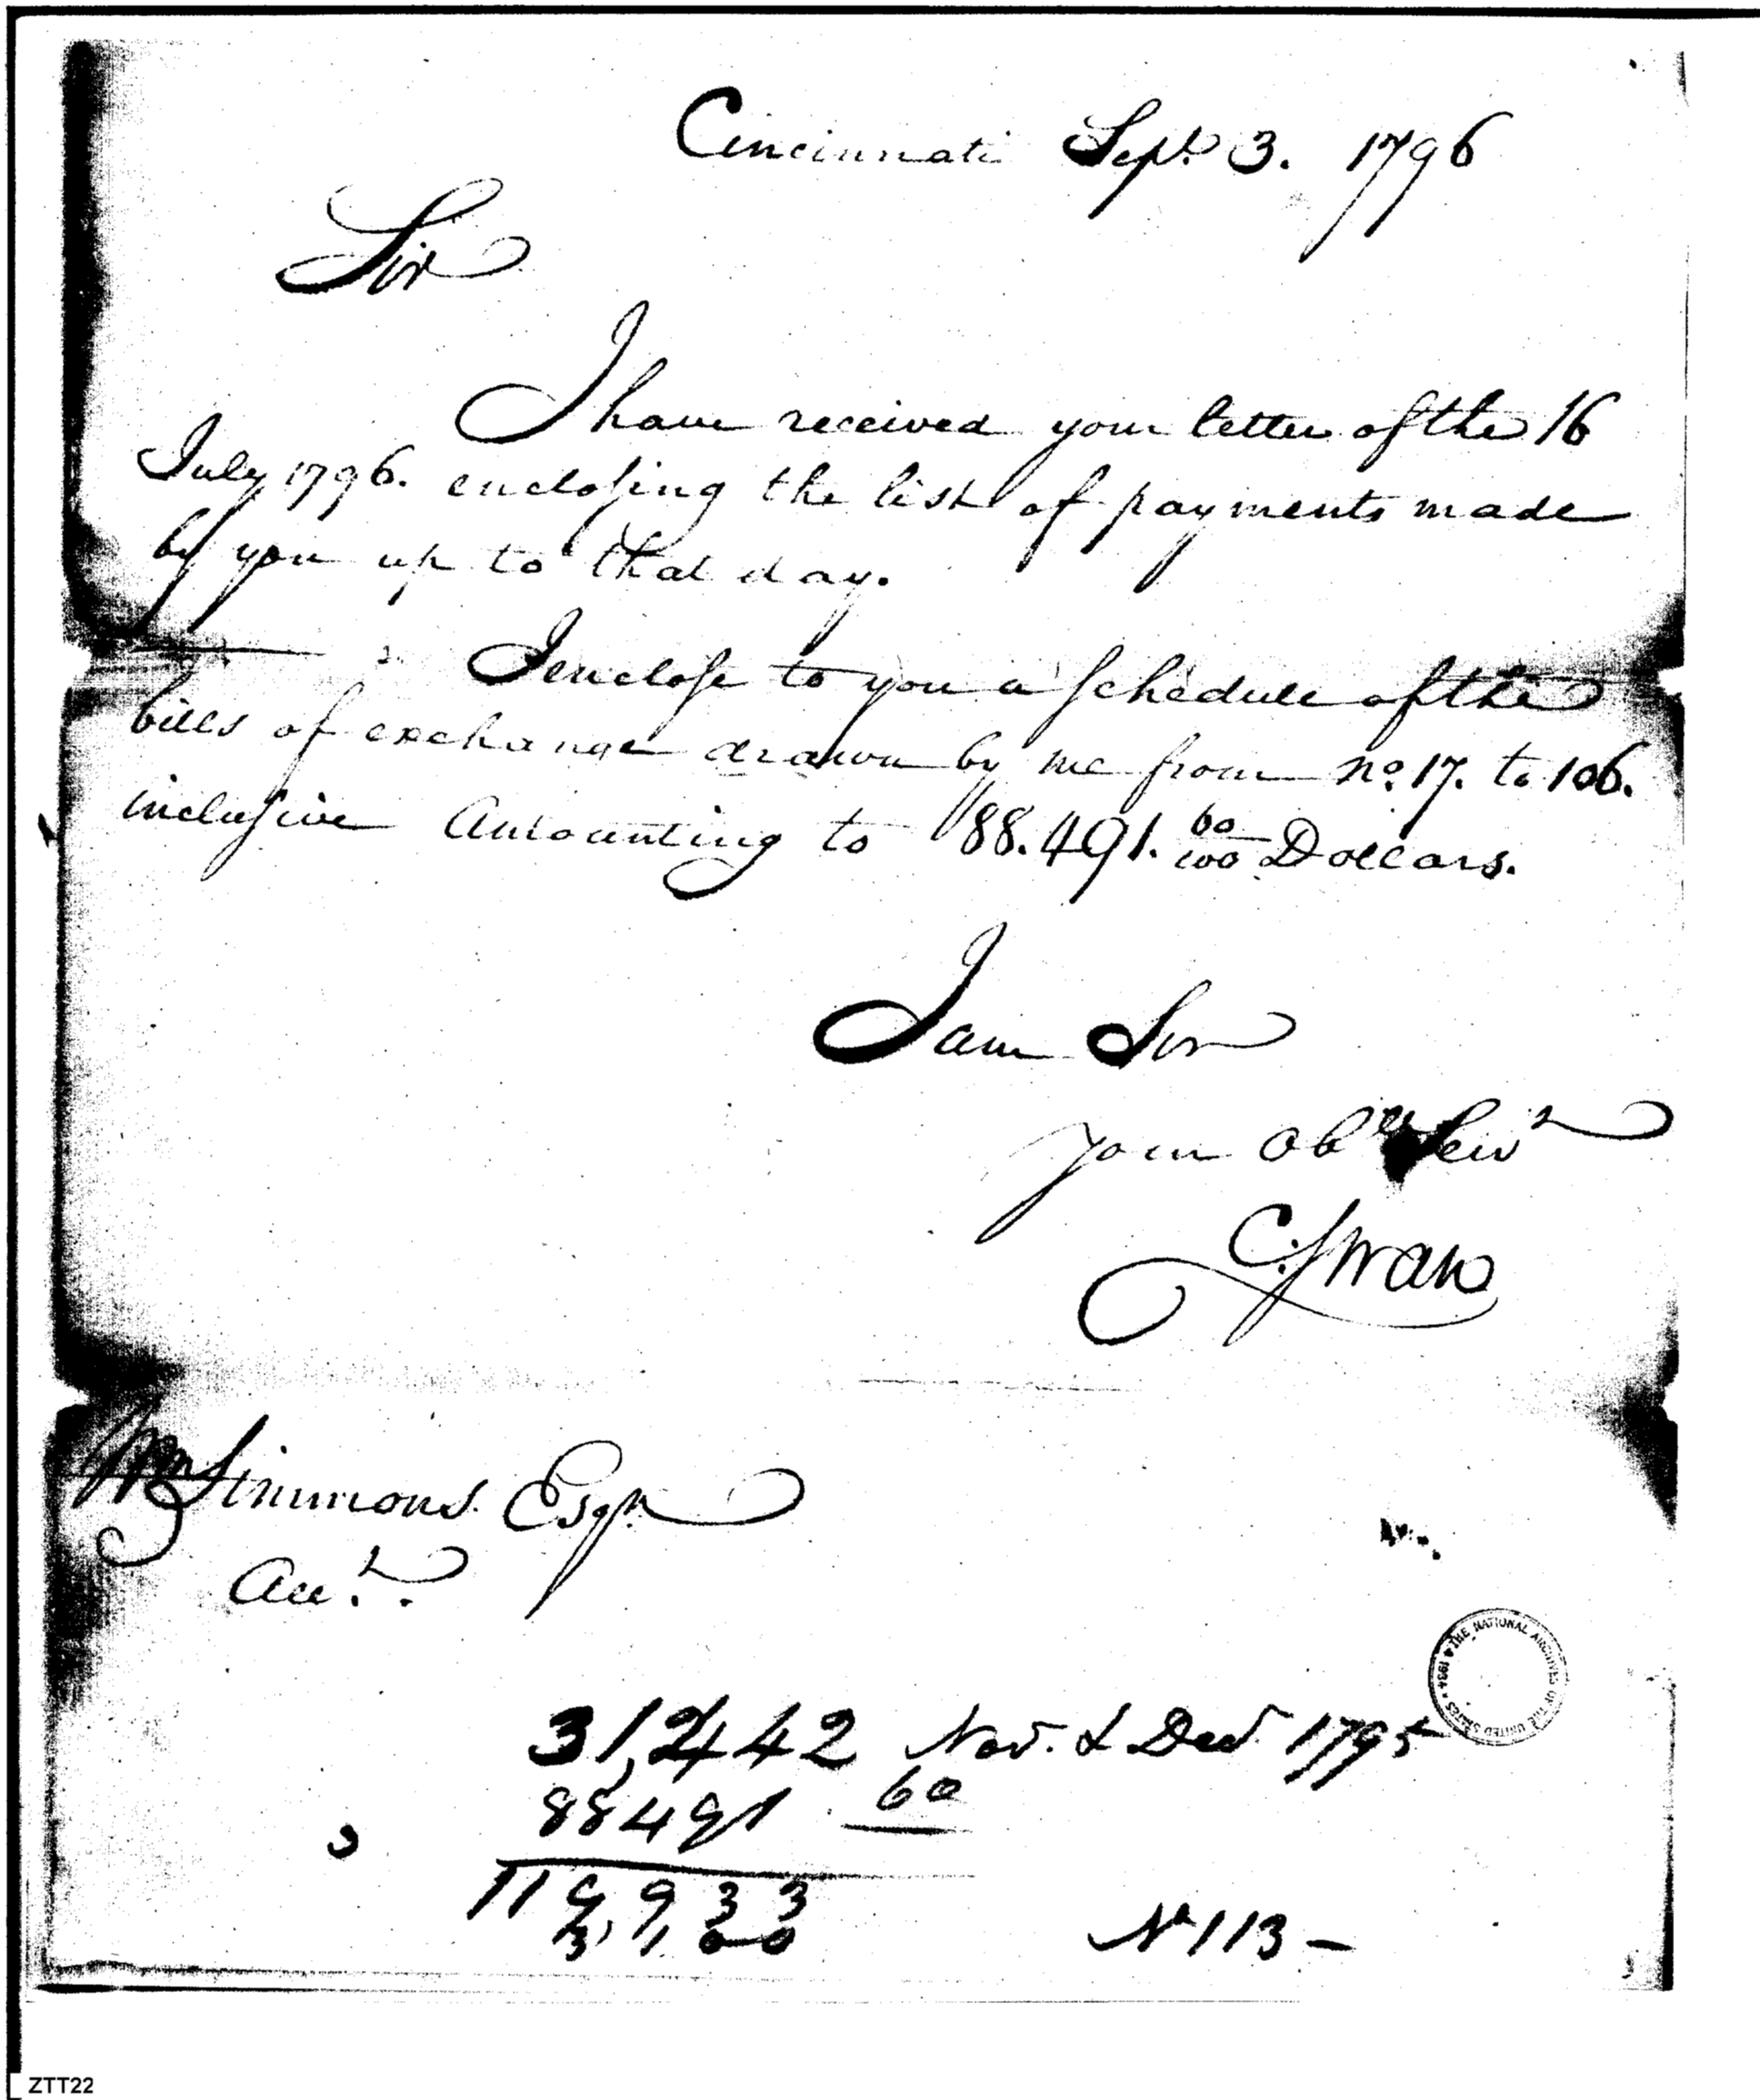 Cincinnati Sept. 3. 1796
Sir
I have received your letter of the 16
July 1796. enclosing the list of payments made
by you up to that day.
I enclose to you a schedule of the
bills of exchange drawn by me from no. 17. to 106.
inclusive Amounting to 88.491. 60/100 Dollars.
I am Sir
Your Obt Servt
C. Swan
Wm Simmons Esqr.
Acct.
31,242 Nov. & Decr. 1795
88491 60
119933
3,100
No 113 -
THE NATIONAL ARCHIVES OF THE UNITED STATES • 1934
ZTT22